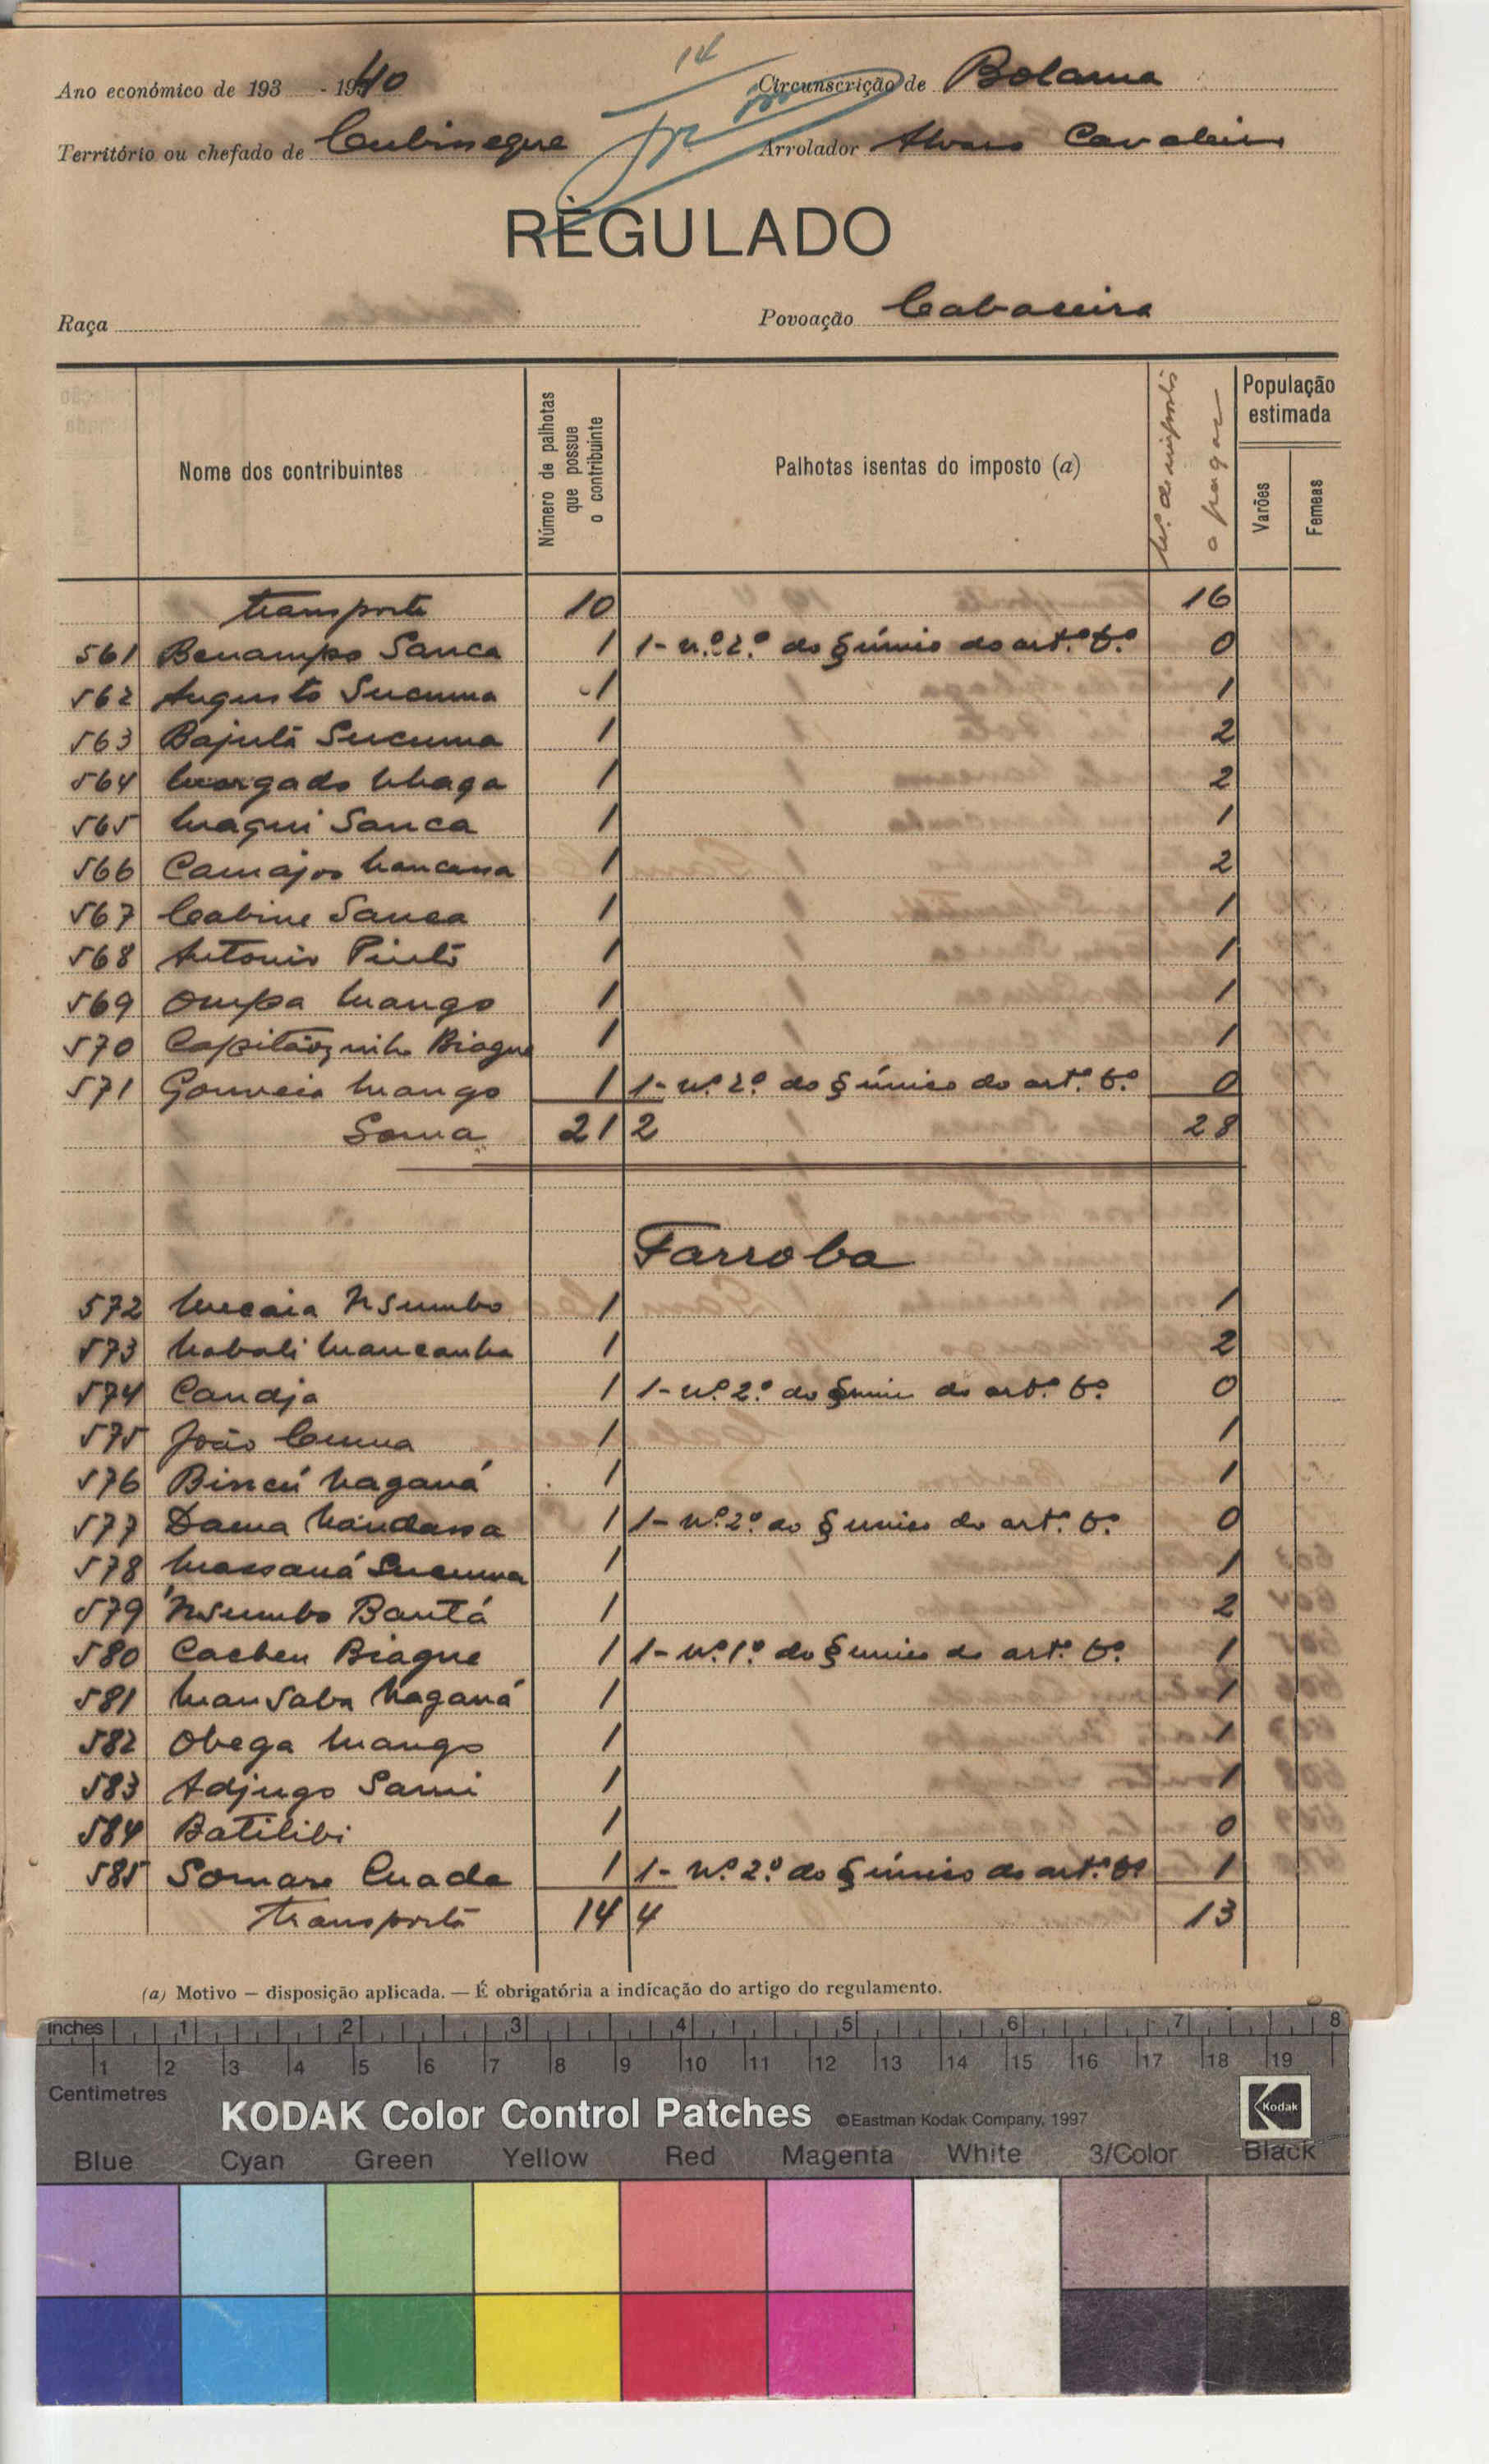 14
Ano económico de 193 - 1940 Circunscrição de Bolama
Território ou chefado de Cubisseque Arrolador Alvaro Cavaleiro
REGULADO
Raça Povoação Cabaceira
Nome dos contribuintes Número de palhotas que possue o contribuinte Palhotas isentas do imposto (a) Nº. de impostos a pagar População estimada Varões Femeas
transporte 10 16
561 Benampo Sanca 1 1- n.º 2.º do § único do art.º 6.º 0
562 Augusto Sucuma 1 1
563 Bajutã Sucuma 1 2
564 Morgado Nhaga 1 2
565 Maqui Sanca 1 1
566 Camajoo Mancassa 1 2
567 Cabine Sanca 1 1
568 Antonio Pinto 1 1
569 Ompa Mango 1 1
570 Capitãozinho Biague 1 1
571 Gouveia Mango 1 1- nº. 2º do § único do art.º 6.º 0
Soma 21 2 28
Farroba
572 Mecaia Nsumbo 1 1
573 Nabali Mancanha 1 2
574 Candja 1 1- nº. 2.º do § unico do artº. 6º. 0
575 João Cunma 1 1
576 Bincú Naganá 1 1
577 Dama 1 1- nº. 2º do § unico do artº. 6º. 0
578 Massaná Sucuma 1 1
579 Nsumbo Bantá 1 2
580 Cacheu Biague 1 1- nº. 1º. do § unico do artº. 6º. 1
581 Mansaba Naganá 1 1
582 Obega Mango 1 1
583 Adjugo Sami 1 1
584 Batilibi 1 0
585 Somare Cuade 1 1- Nº. 2º. do § único do artº. 6º 1
transporte 14 4 13
(a) Motivo — disposição aplicada. — É obrigatória a indicação do artigo do regulamento.
inches 1 2 3 4 5 6 7 8
1 2 3 4 5 6 7 8 9 10 11 12 13 14 15 16 17 18 19
Centimetres
KODAK Color Control Patches ©Eastman Kodak Company, 1997 Kodak
Blue Cyan Green Yellow Red Magenta White 3/Color Black